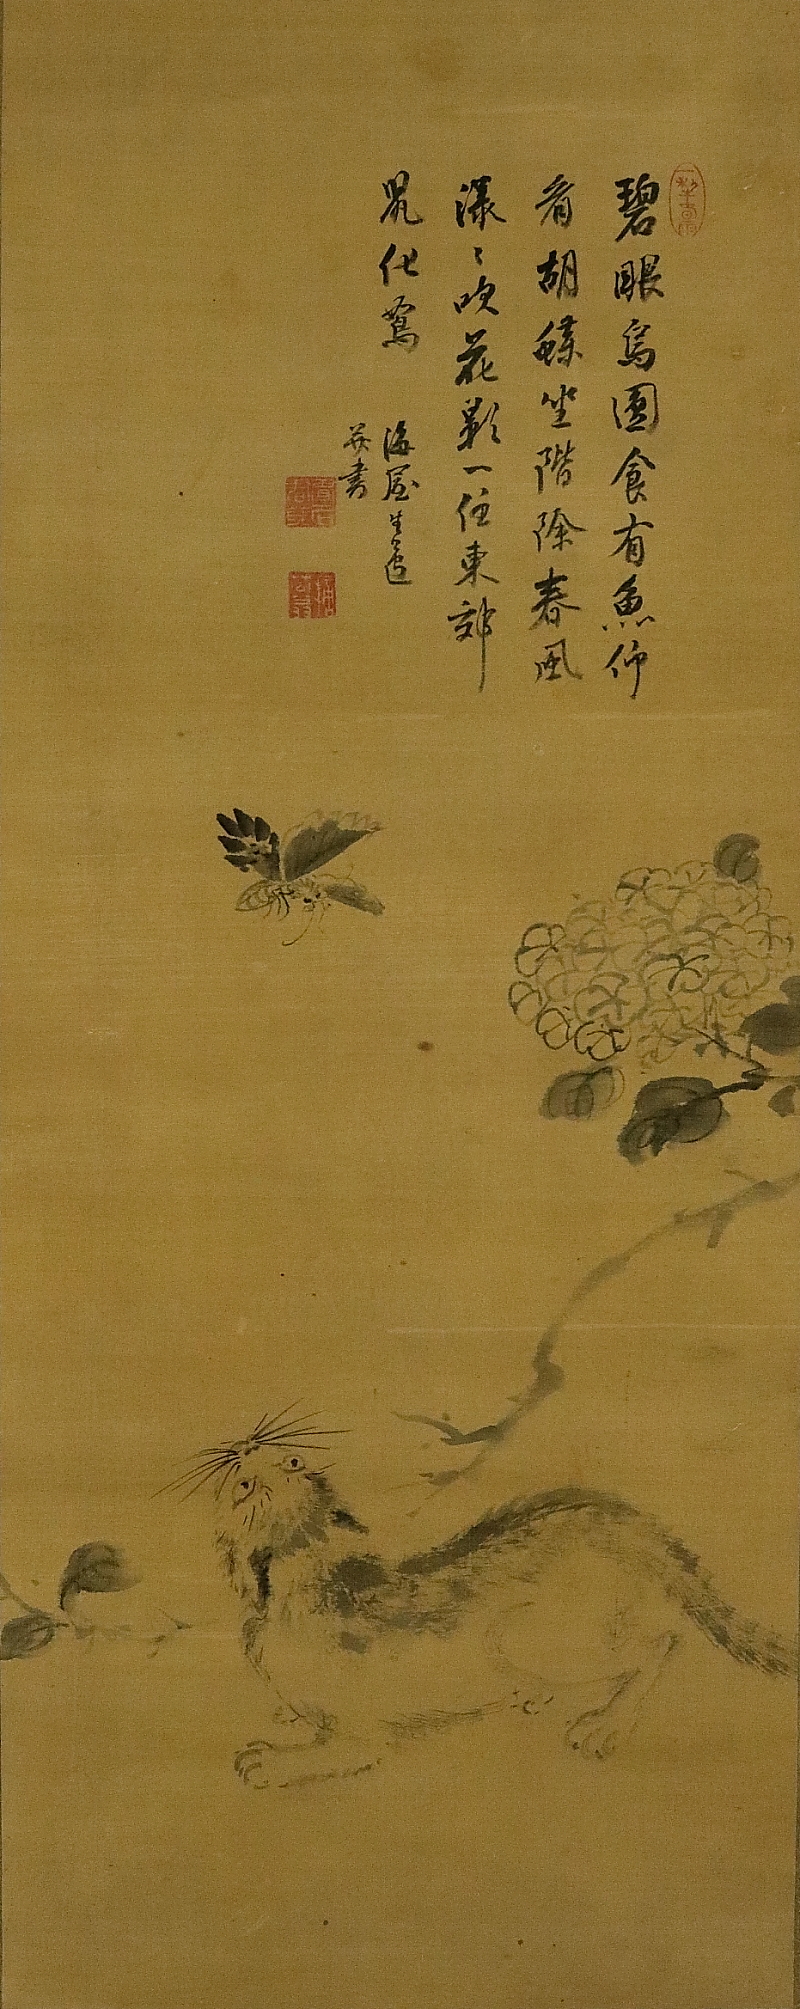 碧眼烏圓食有魚仰
看胡蝶坐階除春風
漾〻吹花影一任東郊
鼠化鴽
海屋生寫
并書